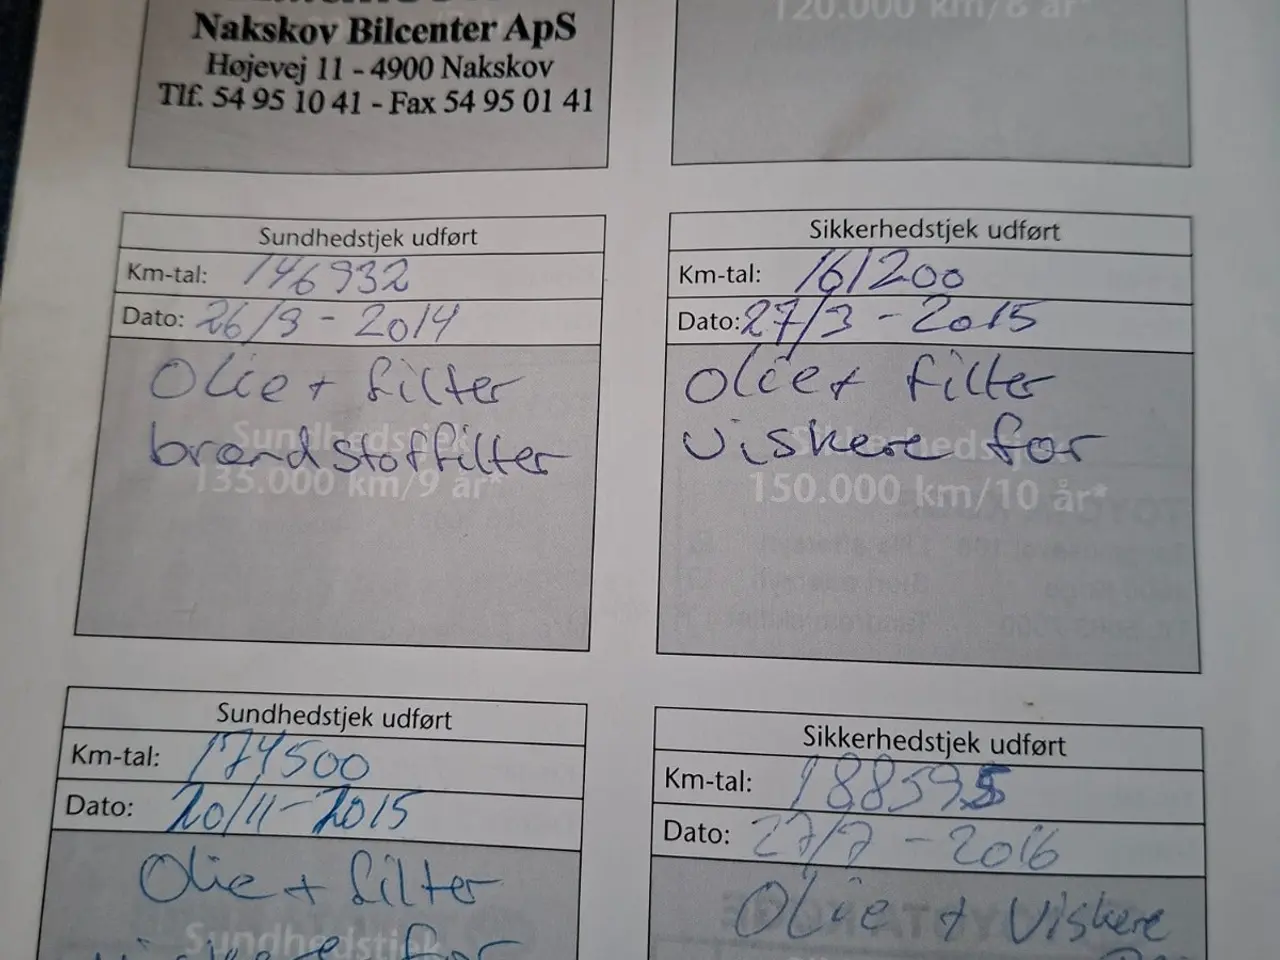 Nakskov Bilcenter ApS
Højevej 11 - 4900 Nakskov
Tlf. 54 95 10 41 - Fax 54 95 01 41
120.000 km/8 år*
Sundhedstjek udført
Km-tal: 146932
Dato: 26/9 - 2014
Olie + filter
brændstoffilter
Sundhedstjek
135.000 km/9 år*
Sikkerhedstjek udført
Km-tal: 161200
Dato: 27/3 - 2015
Olie + filter
viskere for
Sikkerhedstjek
150.000 km/10 år*
Sundhedstjek udført
Km-tal: 174500
Dato: 20/11 - 2015
Olie + filter
viskere for
Sundhedstjek
Sikkerhedstjek udført
Km-tal: 188595
Dato: 27/7 - 2016
Olie + viskere